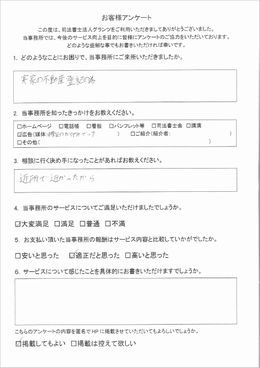 お客様アンケート
この度は、司法書士法人グランツをご利用いただきましてありがとうございました。
当事務所では、今後のサービス向上を目的に皆様にアンケートのご協力をいただいております。
どのような些細な事でもお書きいただければ幸いです。
1. どのようなことにお困りで、当事務所にご来所いただきましたか。
実家の不動産登記の件
2. 当事務所を知ったきっかけをお教えください。
□ホームページ □電話帳 □看板 □パンフレット等 □司法書士会 □講演
☑広告(媒体 ) □ご紹介(紹介者: )
□その他( )
3. 相談に行く決め手になったことがあればお教えください。
近所で近かったから
4. 当事務所のサービスについてご満足いただけましたでしょうか。
☑大変満足 □満足 □普通 □不満
5. お支払い頂いた当事務所の報酬はサービス内容と比較していかがでしたか。
□安いと思った ☑適正だと思った □高いと思った
6. サービスについて感じたことを具体的にお書きいただけますでしょうか。
こちらのアンケートの内容を匿名でHPに掲載させていただいてもよろしいでしょうか。
☑掲載してもよい □掲載は控えて欲しい